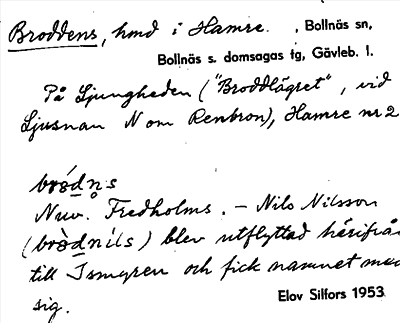 Broddens, hmd i Hamre. , Bollnäs sn,
Bollnäs s. domsagas tg, Gävleb. l.
På Ljungheden ("Broddlägret", vid
Ljusnan N om Renbron), Hamre nr 2
bròd̲n̥s
Nuv. Fredholms. – Nils Nilsson
(bròd̲nils) blev utflyttad härifrån
till Ismyren och fick namnet med
sig.
Elov Silfors 1953